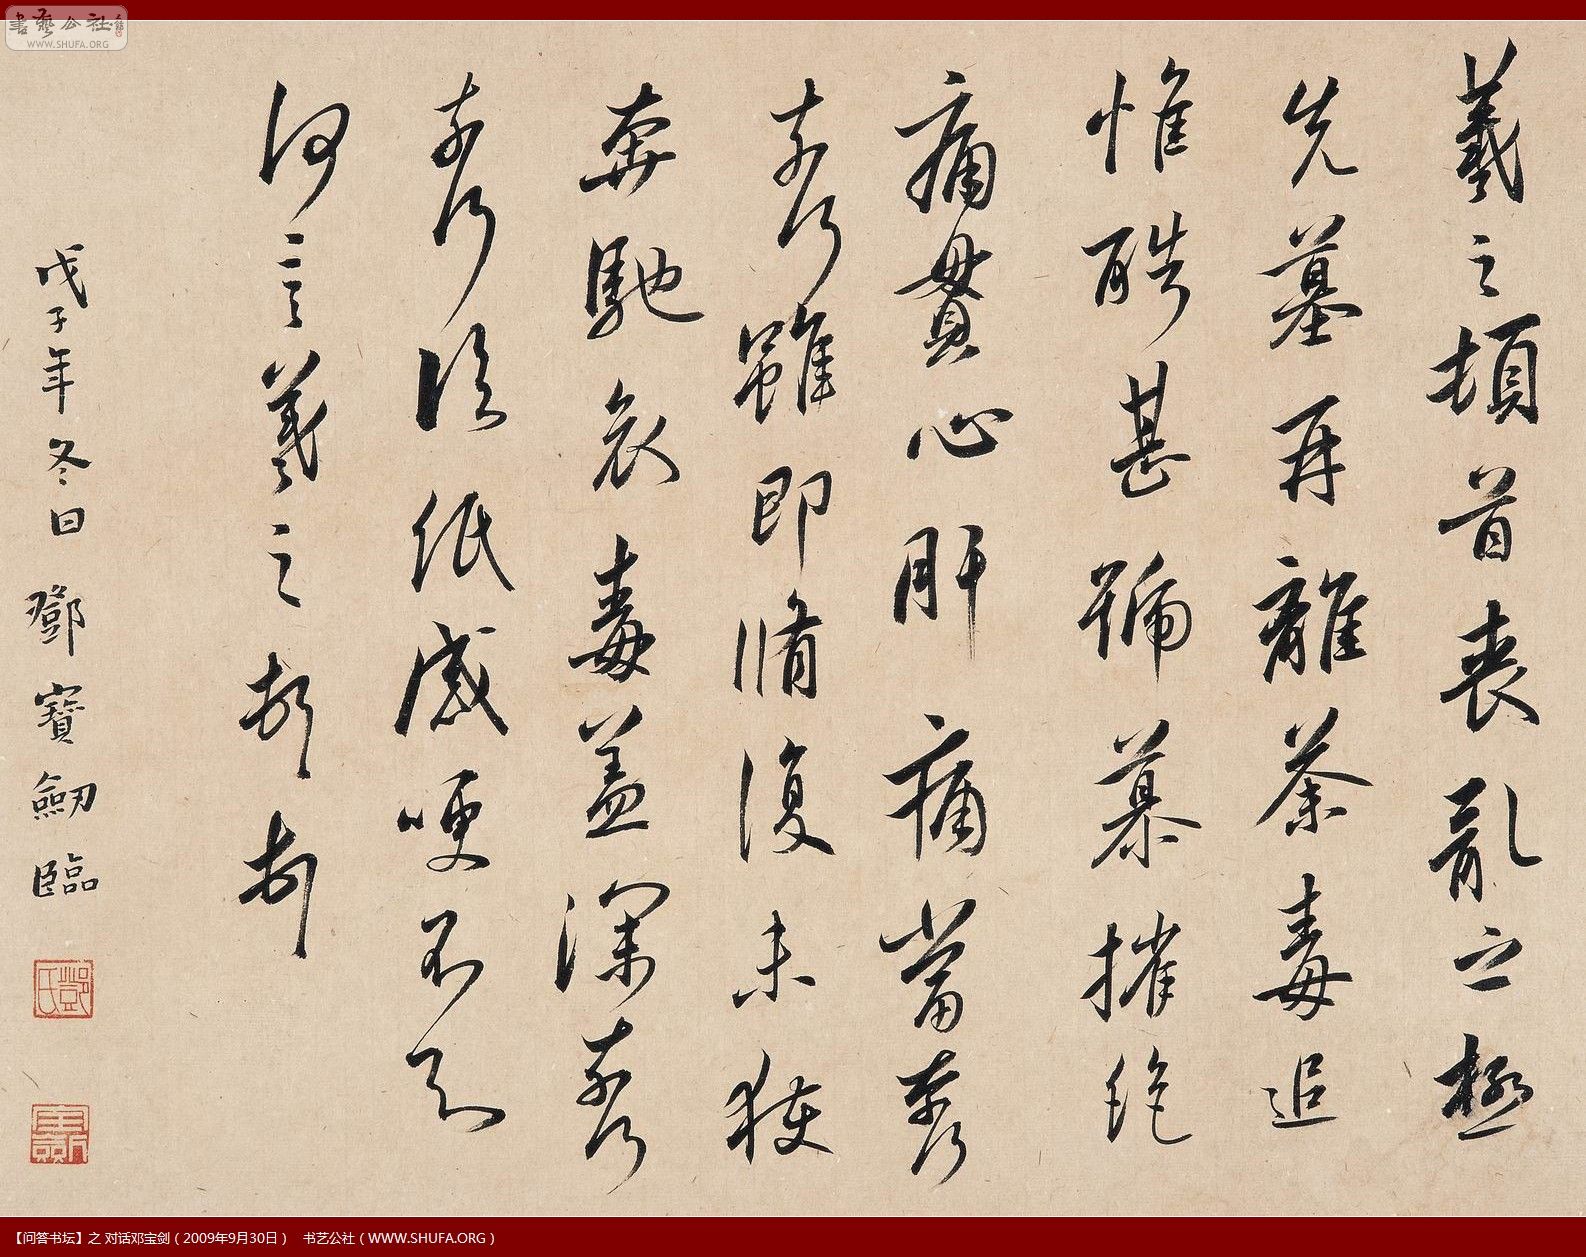 羲之頓首喪亂之極
先墓再離荼毒追
惟酷甚號慕摧絶
痛貫心肝痛當奈何
奈何雖即脩復未獲
奔馳哀毒益深奈何
奈何臨紙感哽不知
何言羲之頓首頓首
戊子年冬日鄧寶劒臨
鄧氏
書藝公社
WWW.SHUFA.ORG
【问答书坛】之 对话邓宝剑（2009年9月30日） 书艺公社（WWW.SHUFA.ORG）